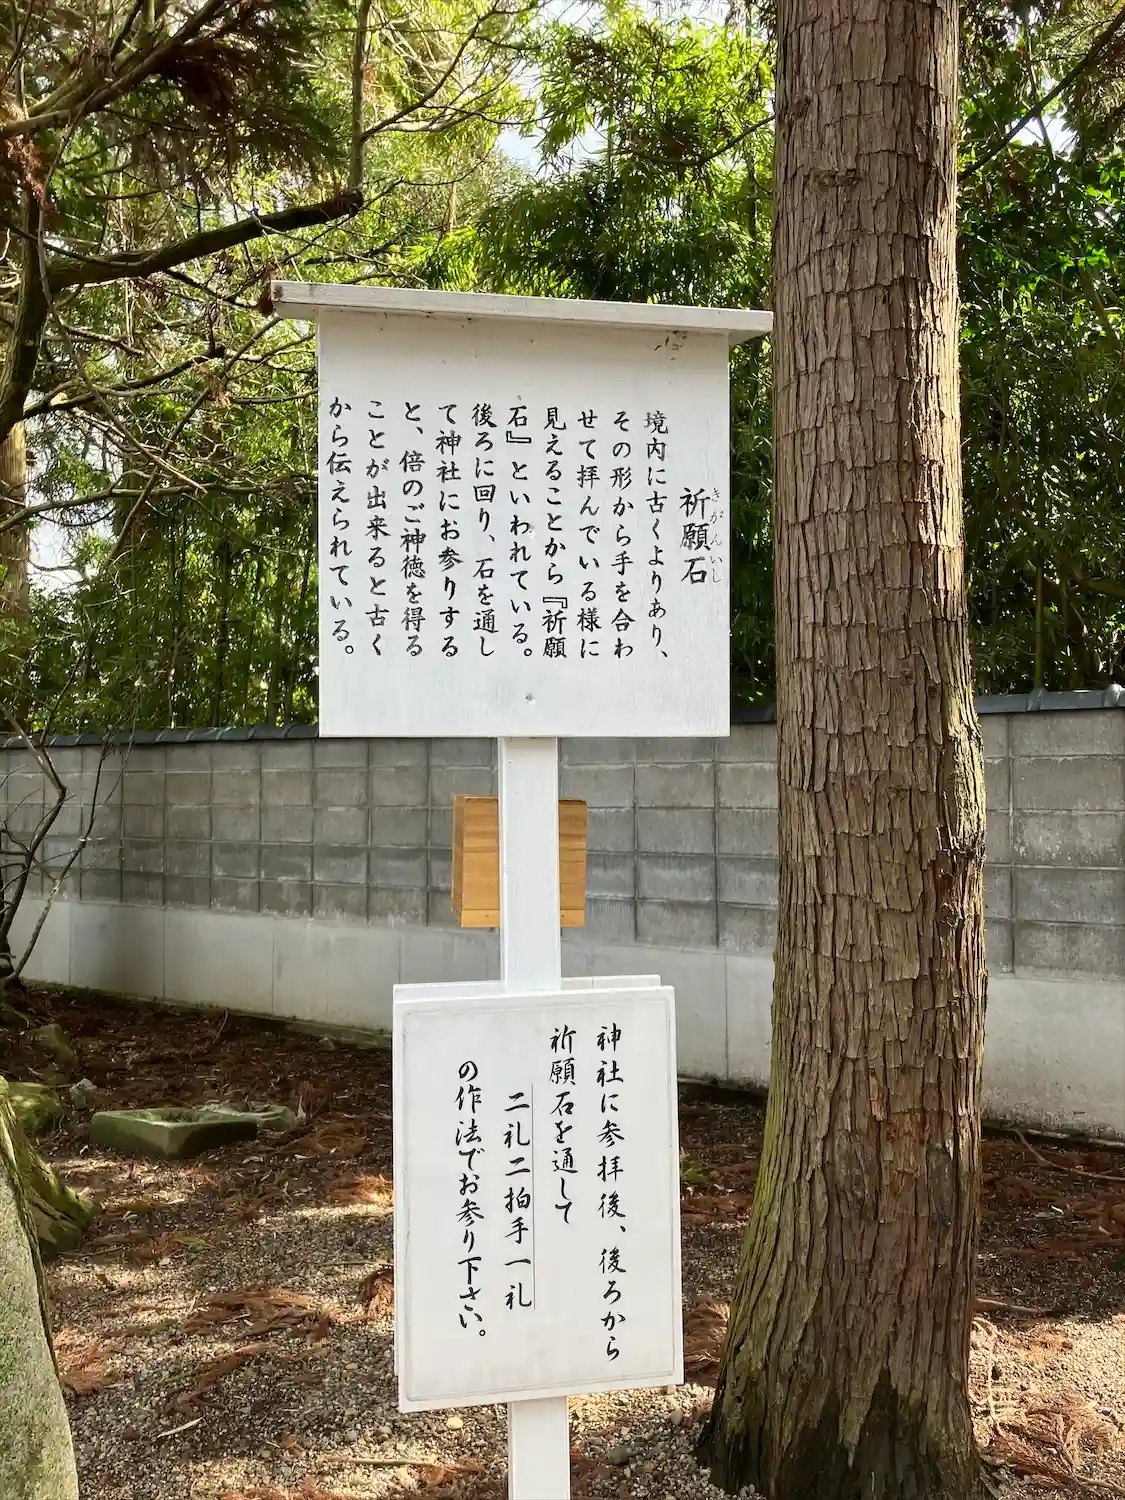 祈願石
きがんいし
境内に古くよりあり、
その形から手を合わ
せて拝んでいる様に
見えることから『祈願
石』といわれている。
後ろに回り、石を通し
て神社にお参りする
と、倍のご神徳を得る
ことが出来ると古く
から伝えられている。
神社に参拝後、後ろから
祈願石を通して
二礼二拍手一礼
の作法でお参り下さい。